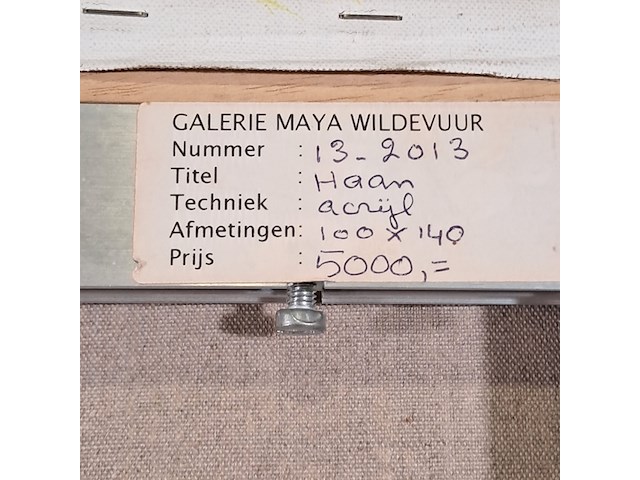 GALERIE MAYA WILDEVUUR
Nummer : 13-2013
Titel : Haan
Techniek : acrijl
Afmetingen: 100 x 140
Prijs : 5000,=